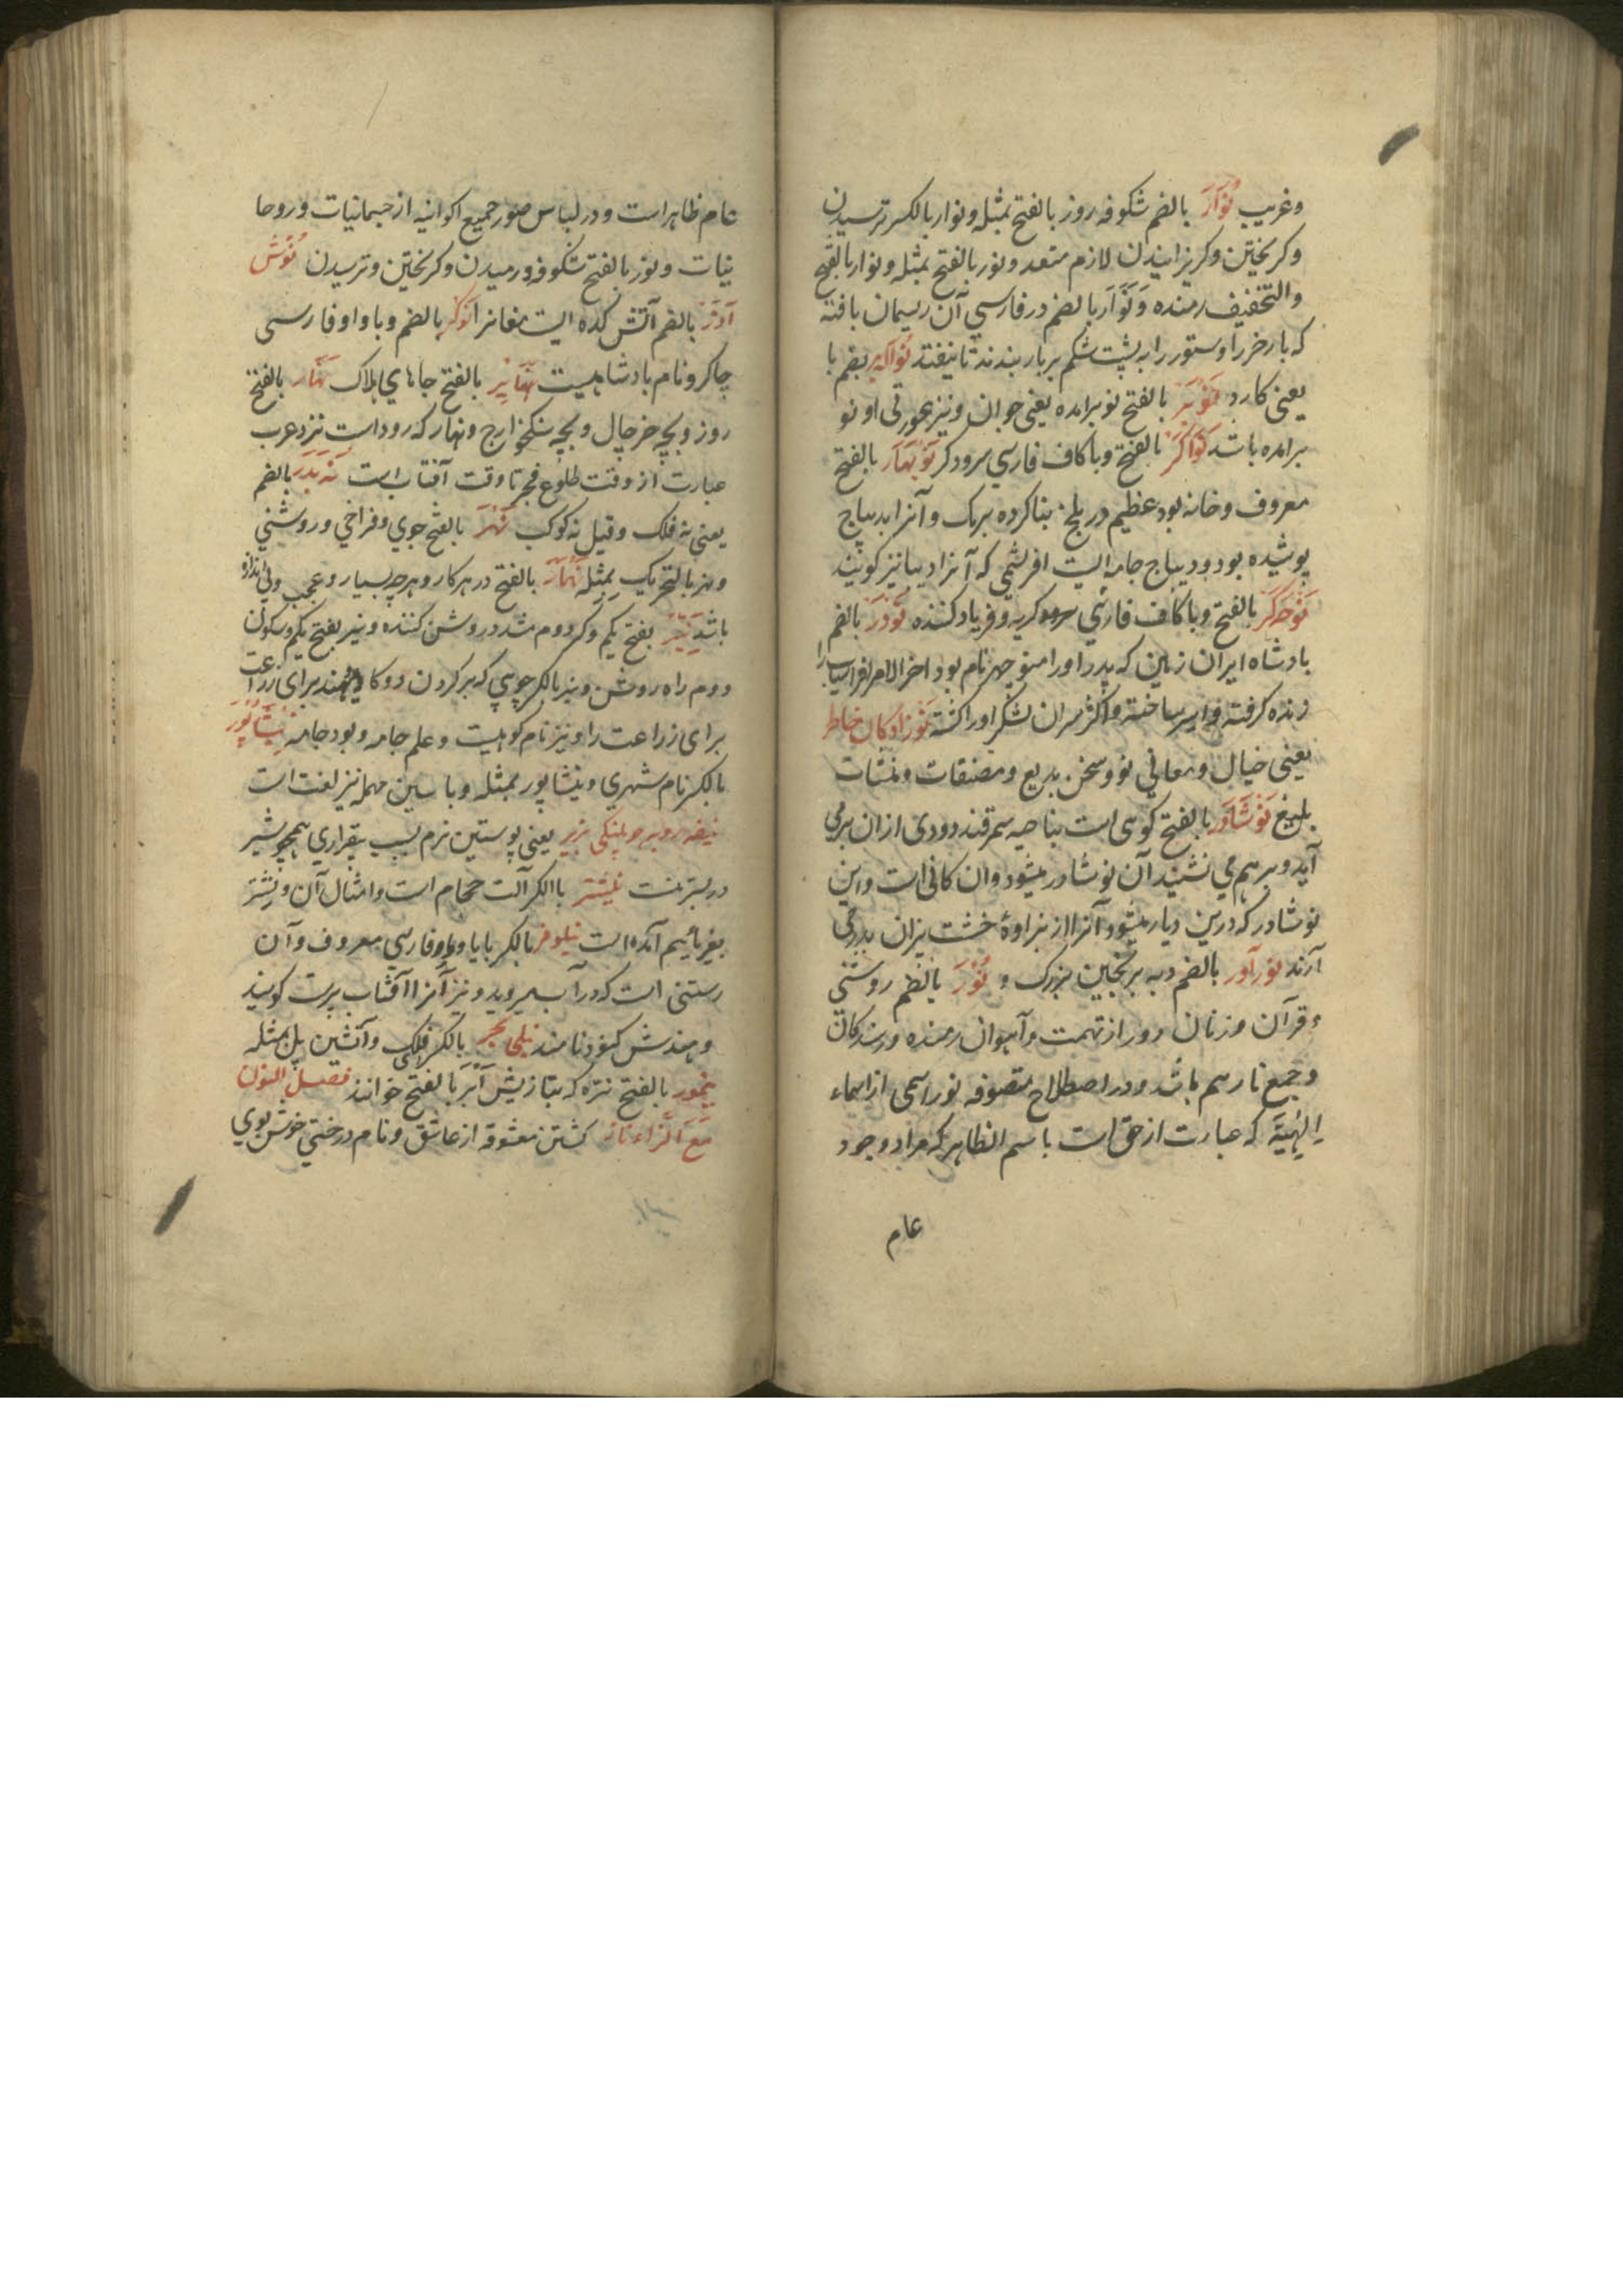 وغریب نُوآرَ بالضم شکوفه روز بالفتح بمثله ونوار بالکسر ترسیدن
وکریختین وکریزانیدن لازم متعد ونور بالفتح بمثله ونوار بالفتح
والتخفیف رمنده وَنُوَار بالضم در فارسي آن ریسمان بافته
که بار خر را وستور را به پشت شکم بر بار بندند تا نیفتد بضم با
یعنی کارد نَوْبَرْ بالفتح نو برامده یعنی جوان ونیز او نو
برامده باشد نَوَاکَرْ بالفتح وباکاف فارسي سرودکر نَوْبَهَار بالفتح
معروف وخانه بود عظیم در بلخ بنا کرده برمک وآنرا بدیباج
پوشیده بود ودیباج جامه ایست افریشمی که آنرا دیبا نیز کویند
نَوْحَه کَرْ بالفتح وباکاف فارسي کریه وفریاد کننده نَوْذَرْ بالضم
بادشاه ایران زمین که پدر اورا منوچهر نام بود اخر الامر افراسیاب اورا
زنده کرفته واسیر ساخته واکثر سران لشکر اورا کشته نَوْزادکان خاطر
یعنی خیال ومعانی نو وسخن بدیع ومصنفات ومنشات
بلیغ نَوْشَادَر بالفتح کوهی است بناحیه سمرقند دودی ازان برمی
آید وبر هم می نشیند آن نوشادر میشود وان کانی است واین
نوشادر که درین دیار میشود آنرا از نزاوۀ خشت پزان بدر می
آرند نورآور بالضم دبه برنجین بزرک و نُوْرَ بالضم روشنی
وقرآن وزنان دور از تهمت وآهوان رمنده ورمندکان
وجمع نار سم باشد ودر اصطلاح متصوفه نور اسمی از اسماء
اِلٰهِیَّه که عبارت از حق است باسم الظاهر که مراد وجود
عام
عام ظاهر است ودر لباس صور جمیع اکوانیه از جسمانیات وروحا
نیات ونور بالفتح شکوفه ورمیدن وکریختین وترسیدن نُوْش
آذَرْ بالضم آتش کده ایست مغانرا نوکر بالضم وباواو فارسی
چاکر ونام بادشاهیست نَهَابِرْ بالفتح جاهاي هلاک نَهَار بالفتح
روز وبچه خرچال وبچه سنکخوارج ونهار که روز است نزد عرب
عبارت از وقت طلوع فجر تا وقت آفتاب است نُه پدر بالضم
یعنی نه فلک وقیل نه کوکب نَهْرَ بالفتح جوي وفراخي وروشني
ونهر بالتحریک بمثله نَهْمَارْ بالفتح در هر کار وهر چه بسیار وعجب وبی اندازه
باشد نَیِّرْ بفتح یکم وکسر دوم مشدد روشن کننده ونیر بفتح یکم وسکون
دوم راه روشن ونیر بالکسر چوبي که بر کردن دو کاو نهند برای زراعت
برای زراعت را ونیز نام کوهیست وعلم جامه وبود جامه نیشاپور
بالکسر نام شهري ونیشاپور بمثله وباسین مهمله نیز لغت است
نیفه روبه چو پلنکی بزیر یعنی پوستین نرم بسبب بیقراري همچو شیر
در بستر منست نیشتر باالکسر آلت حجام است وامثال آن ونشتر
بغیر یا نیم آمده است نیلوفر بالکسر بایا وواو فارسي معروف وآن
رستنی است که در آب میروید ونیز آنرا آفتاب پرست کویند
وهندش کنود نامند نیلی بحر بالکسر فلک وآتشین پل بمثله
نیمور بالفتح نره که بتازیش اَیْرَ بالفتح خوانند فصل النون
مَعَ الزَّاء ناز کشتن معشوقه از عاشق ونام درختي خوش بوي